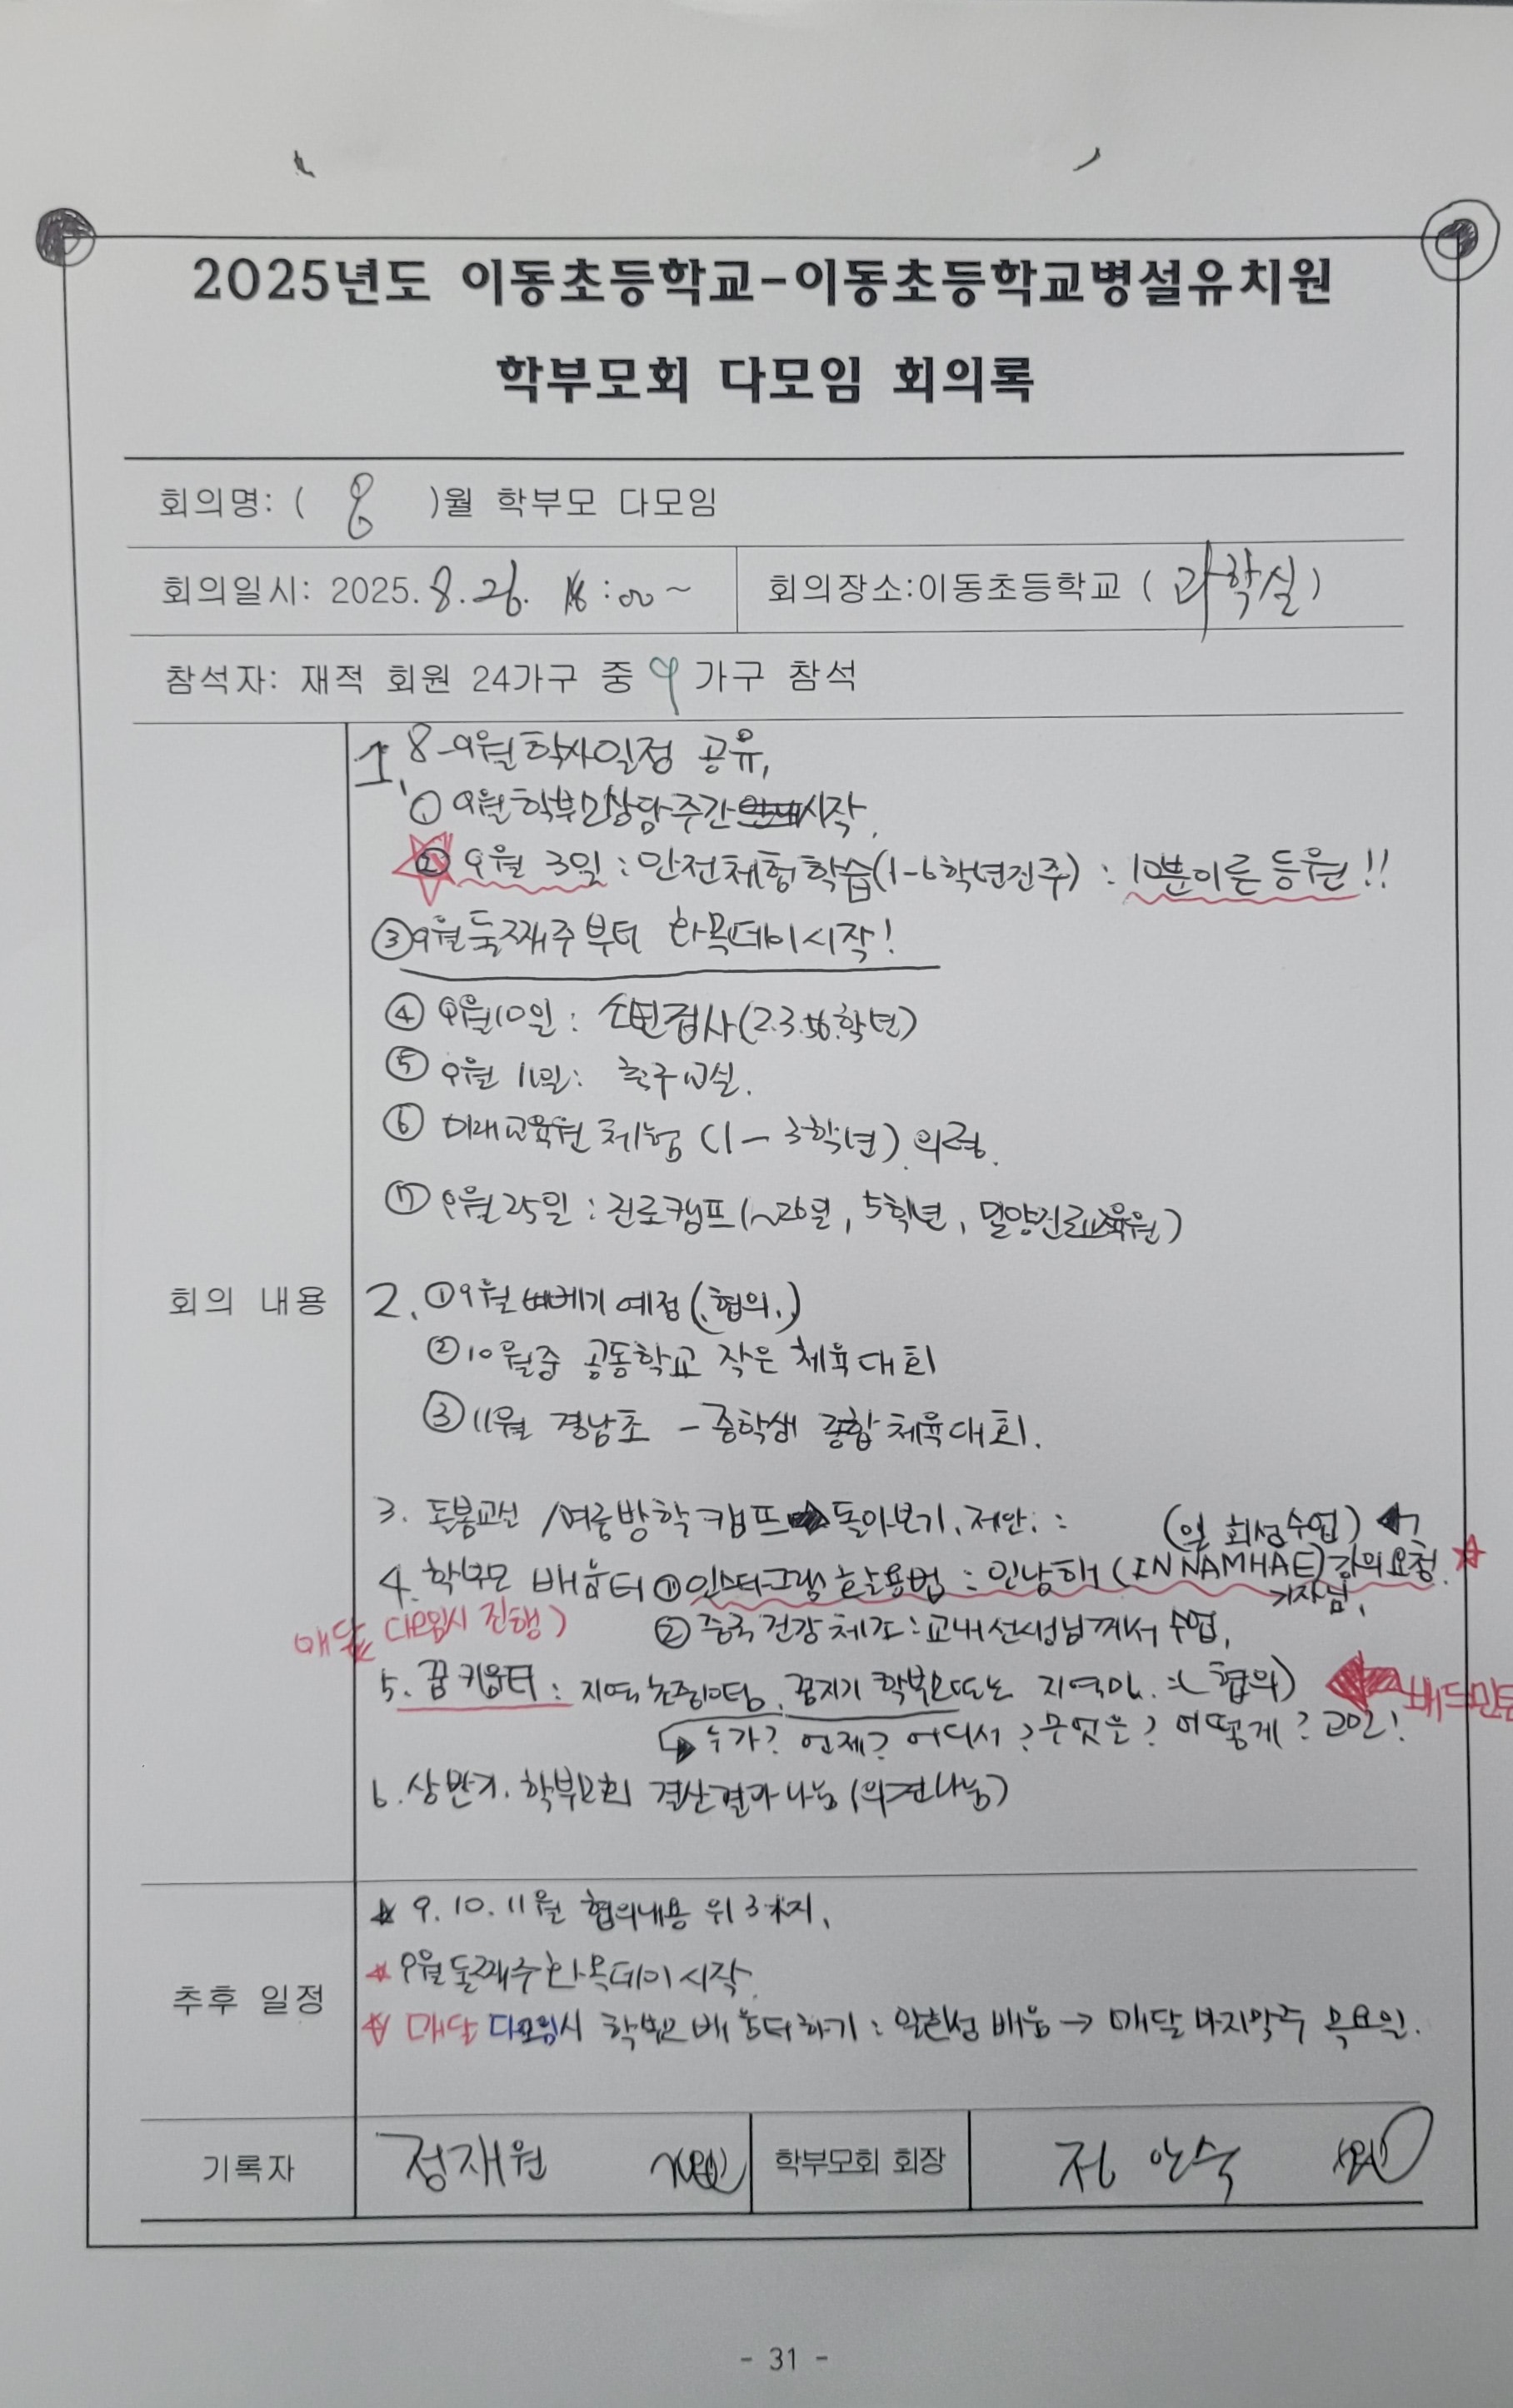 2025년도 이동초등학교-이동초등학교병설유치원
학부모회 다모임 회의록
회의명: ( 8 )월 학부모 다모임
회의일시: 2025. 8. 26. :00~ 회의장소:이동초등학교 ( 과학실 )
참석자: 재적 회원 24가구 중 9 가구 참석
1. 8-9월 학사일정 공유,
① 9월 학부모상담주간 시작.
② 9월 3일 : 안전체험학습(1-6학년진주) : 10분이른 등원!!
③ 9월 둘째주부터 화목데이 시작!
④ 9월10일 : 소변검사(2.3.56.학년)
⑤ 9월 11일: 축구교실.
⑥ 미래교육원 체험 (1-3학년) 의령.
⑦ 9월25일 : 진로캠프(~26일, 5학년, 밀양진로교육원)
회의 내용
2. ①9월 벼베기 예정(협의.)
②10월중 공동학교 작은 체육대회
③11월 경남초 - 중학생 종합체육대회.
3. 돌봄교실 /여름방학캠프 돌아보기, 제안. :
(일 회성수업)
4. 학부모 배움터 ①인스타그램 활용법 : 인남해 (IN NAMHAE) 강의요청.
기자님,
매달 다모임시 진행)
② 중국건강체조:교내선생님께서 수업,
5. 꿈키움터: 꿈지기 학부모또는 협의) 배드민턴
누가? 언제? 어디서? 무엇을? 어떻게? 고민!
6. 상반기. 학부모회 결산결과나눔 (의견나눔)
추후 일정
☆ 9. 10. 11월 협의내용 위 3가지,
☆ 9월둘째주 화목데이 시작.
☆ 매달 다모임시 학부모배움터하기 : 배움 → 매달 마지막주 목요일.
기록자 정재원 학부모회 회장 숙
- 31 -